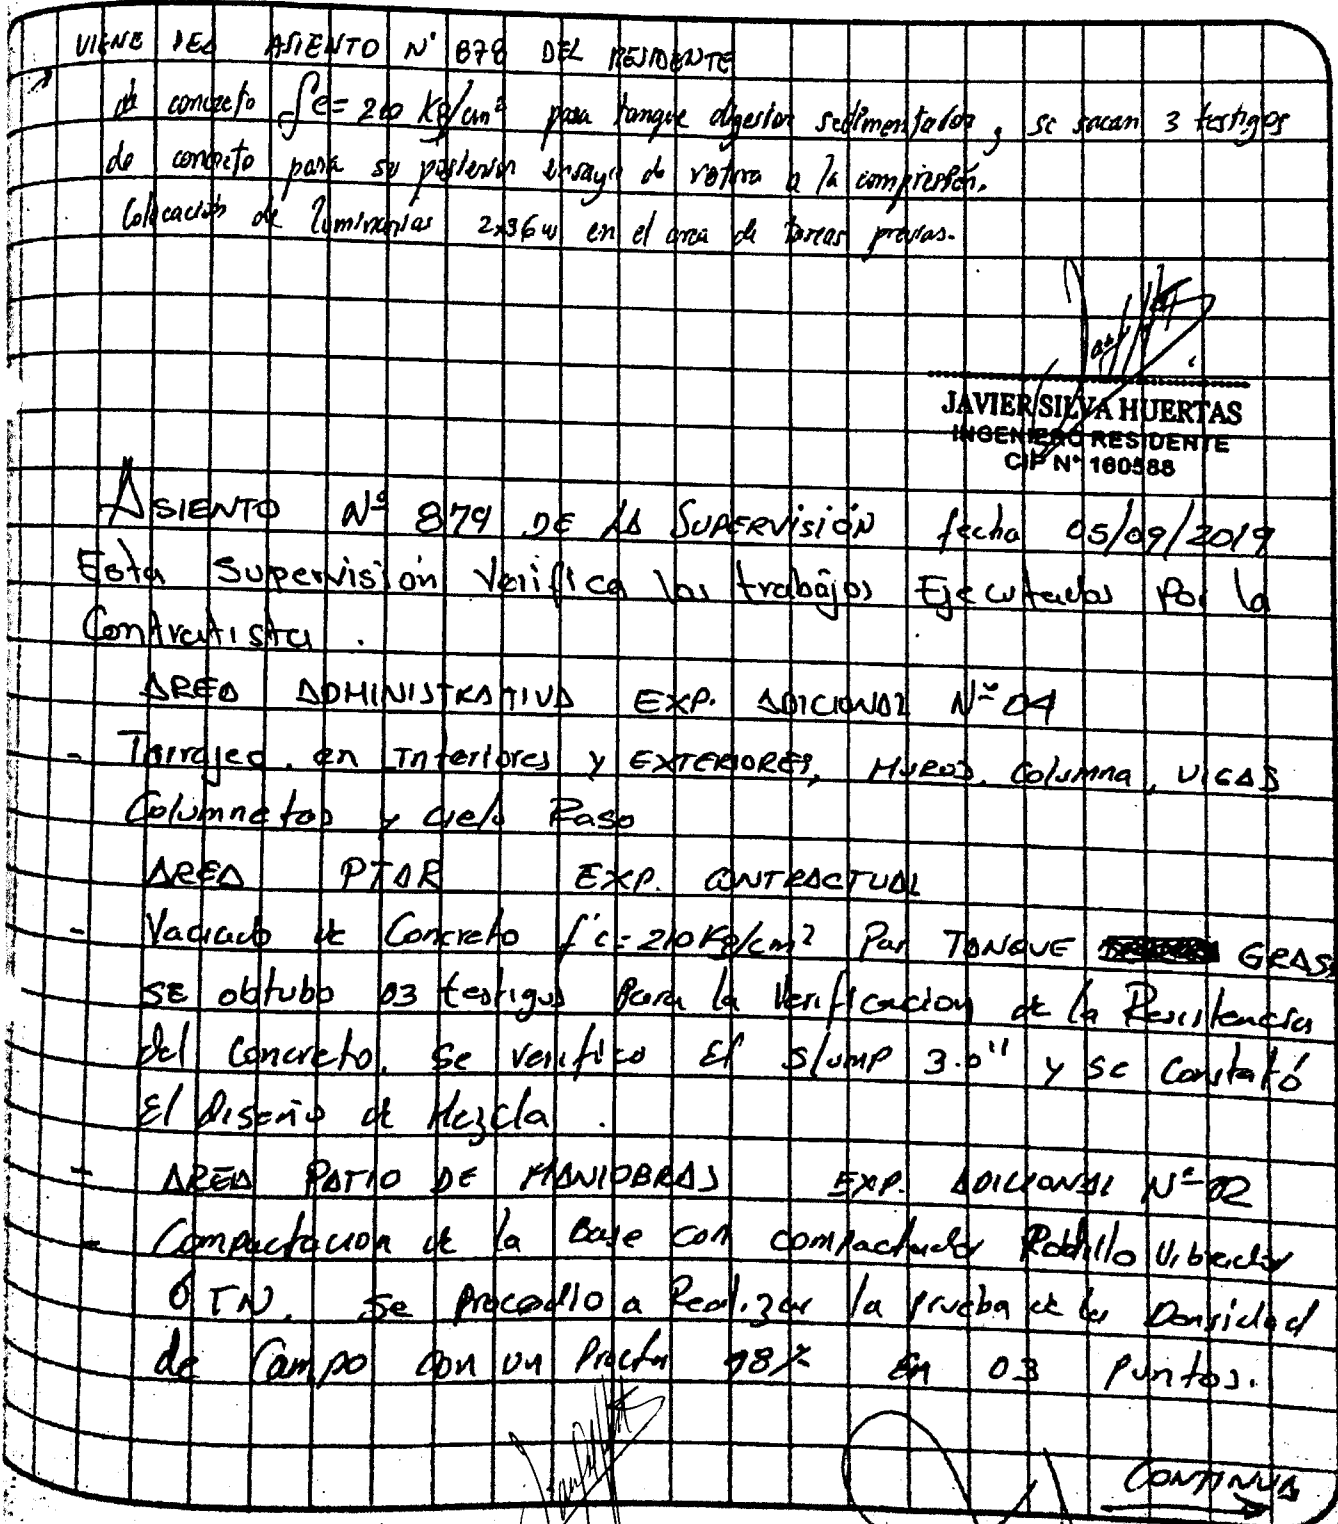 VIENE DEL ASIENTO N° 878 DEL RESIDENTE
de concreto f'c= 210 Kg/cm² para tanque digestor sedimentador, se sacan 3 testigos
de concreto para su posterior ensayo de rotura a la compresión.
Colocación de luminarias 2x36w en el area de tareas previas.
JAVIER SILVA HUERTAS
INGENIERO RESIDENTE
CIP N° 160588
ASIENTO Nº 879 DE LA SUPERVISIÓN fecha 05/09/2019
Esta Supervisión Verifica los trabajos Ejecutados Por la
Contratista.
AREA ADMINISTRATIVA EXP. ADICIONAL Nº 04
- Tarrajeo en Interiores y EXTERIORES, MUROS, Columna, VIGAS
Columnetas y cielo Raso
AREA PTAR EXP. CONTRACTUAL
- Vaciado de Concreto f'c=210Kg/cm² Par TANQUE GRASA
SE obtubo 03 testigos Para la Verificacion de la Resistencia
del Concreto. Se verifico El Slump 3.0" y se Constató
El Diseño de Mezcla.
- AREA PATIO DE MANIOBRAS EXP. ADICIONAL Nº 02
- Compactacion de la Base con compactador Rodillo Vibrador
6 TN. Se Procedio a Realizar la Prueba de la Densidad
de Campo con un Proctor 98% En 03 Puntos.
CONTINUA